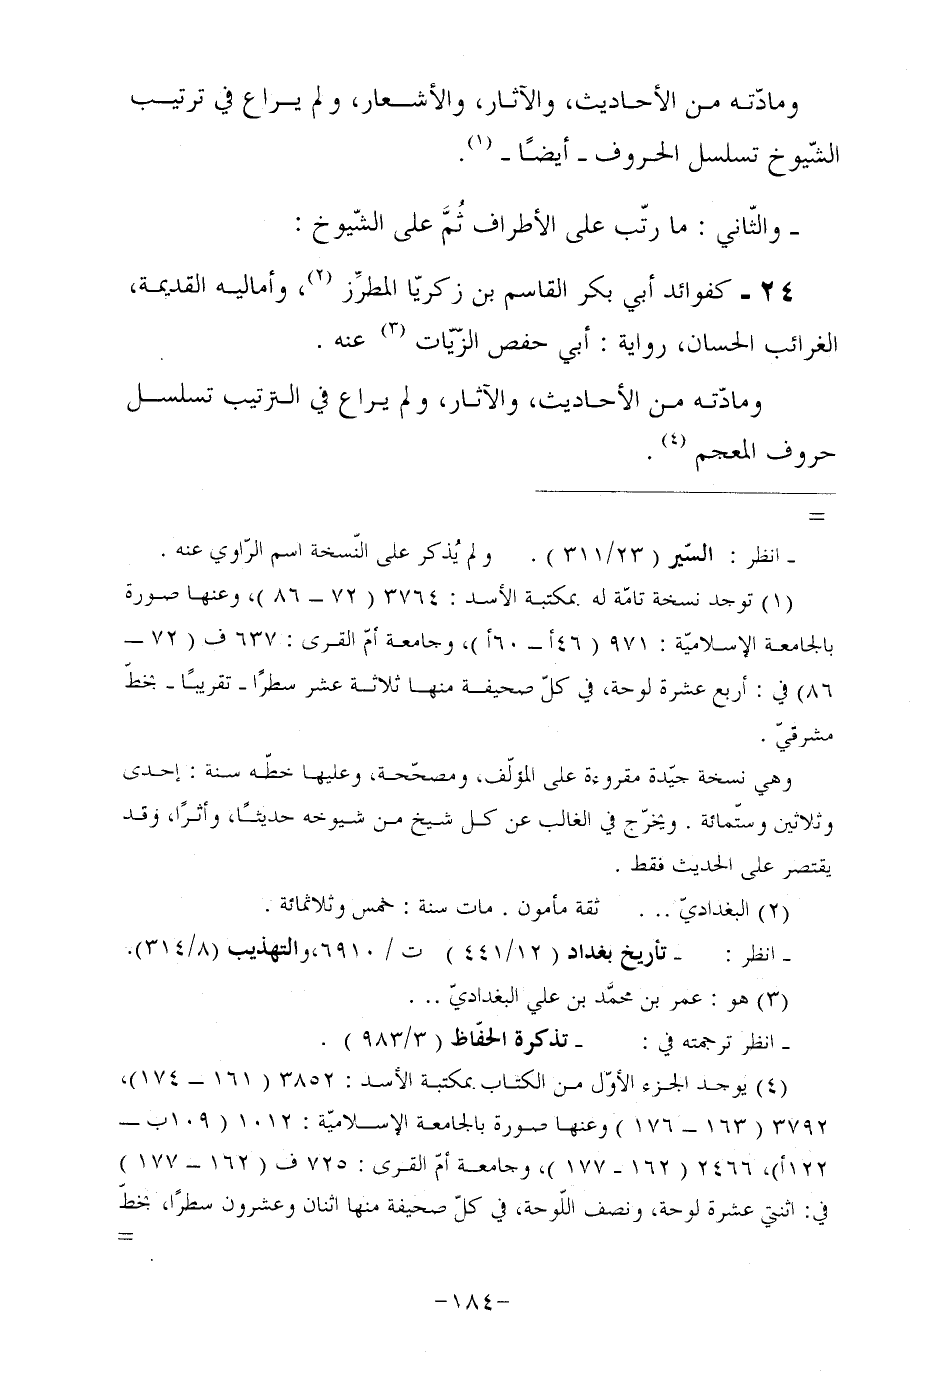 ومادّته من الأحاديث، والآثار، والأشعار، ولم يراع في ترتيب
الشّيوخ تسلسل الحروف ـ أيضًا ـ (١).
ـ والثّاني : ما رتّب على الأطراف ثُمَّ على الشّيوخ :
٢٤ ـ كفوائد أبي بكر القاسم بن زكريّا المطرِّز (٢)، وأماليه القديمة،
الغرائب الحسان، رواية : أبي حفص الزّيّات (٣) عنه .
ومادّته من الأحاديث، والآثار، ولم يراع في الترتيب تسلسل
حروف المعجم (٤) .
=
ـ انظر : السّير ( ٣١١/٢٣ ) . ولم يُذكر على النّسخة اسم الرّاوي عنه .
(١) توجد نسخة تامّة له بمكتبة الأسد : ٣٧٦٤ ( ٧٢ ــ ٨٦ )، وعنها صورة
بالجامعة الإسلاميّة : ٩٧١ ( ٤٦أ ــ ٦٠أ )، وجامعة أمّ القرى : ٦٣٧ ف ( ٧٢ ــ
٨٦) في : أربع عشرة لوحة، في كلّ صحيفة منها ثلاثة عشر سطرًا ـ تقريبًا ـ بخطّ
مشرقيّ .
وهي نسخة جيّدة مقروءة على المؤلّف، ومصحّحة، وعليها خطّه سنة : إحدى
وثلاثين وستّمائة . ويخرّج في الغالب عن كل شيخ من شيوخه حديثًا، وأثرًا، وقد
يقتصر على الحديث فقط .
(٢) البغداديّ .. . ثقة مأمون . مات سنة : خمس وثلاثمائة .
ـ انظر : ـ تأريخ بغداد ( ٤٤١/١٢ ) ت / ٦٩١٠، والتهذيب (٣١٤/٨).
(٣) هو : عمر بن محمَّد بن علي البغداديّ .. .
ـ انظر ترجمته في : ـ تذكرة الحفّاظ ( ٩٨٣/٣ ) .
(٤) يوجد الجزء الأوّل من الكتاب بمكتبة الأسد : ٣٨٥٢ ( ١٦١ ــ ١٧٤)،
٣٧٩٢ ( ١٦٣ ــ ١٧٦ ) وعنها صورة بالجامعة الإسلاميّة : ١٠١٢ ( ١٠٩ب ــ
١٢٢أ)، ٢٤٦٦ ( ١٦٢ ـ ١٧٧ )، وجامعة أمّ القرى : ٧٢٥ ف ( ١٦٢ ــ ١٧٧ )
في: اثنتي عشرة لوحة، ونصف اللّوحة، في كلّ صحيفة منها اثنان وعشرون سطرًا، بخطّ
=
-١٨٤-